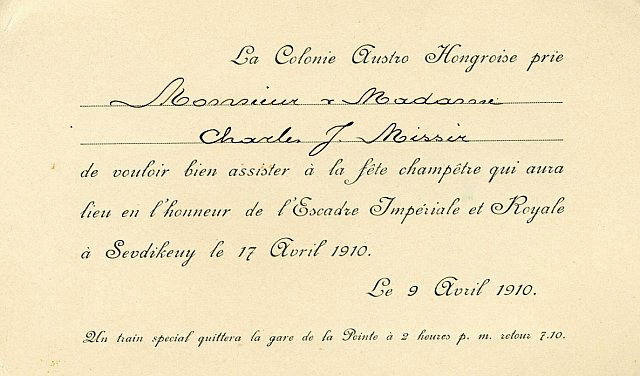 La Colonie Austro Hongroise prie
Monsieur & Madame
Charles J. Missir
de vouloir bien assister à la fête champêtre qui aura
lieu en l'honneur de l'Escadre Impériale et Royale
à Sevdikeuy le 17 Avril 1910.
Le 9 Avril 1910.
Un train special quittera la gare de la Pointe à 2 heures p. m. retour 7.10.